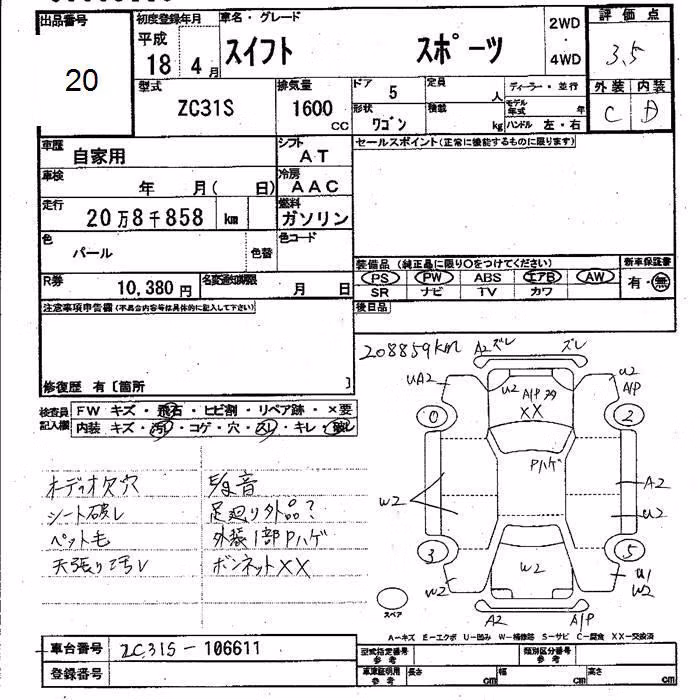 出品番号 初度登録年月 車名・グレード 2WD 評価点
20 平成 18 4月 スイフト スポーツ ・4WD 3.5
型式 排気量 ドア 5 定員 人 ディーラー・並行 外装 内装
ZC31S 1600 CC 形状 ワゴン 積載 kg モデル年式 年 C D
ハンドル 左・右
車歴 自家用 シフト AT セールスポイント(正常に機能するものに限ります)
車検 年 月( 日) 冷房 AAC
走行 20万8千858 km 燃料 ガソリン
色 パール 色替 色コード 装備品(純正品に限り○をつけてください) 新車保証書
PS PW ABS エアB AW 有・無
R券 10,380円 名変通知期限 月 日 SR ナビ TV カワ
注意事項申告欄(不具合内容等は具体的に記入して下さい) 後日品
208859km A2 ズレ ズレ
UA2 U2 A/P XX U2 A/P
修復歴 有〔箇所 〕
検査員記入欄 FW キズ・飛石・ヒビ割・リペア跡・×要
内装 キズ・汚レ・コゲ・穴・スレ・キレ・破レ
0 2
Pハゲ
オーディオ欠穴 異音 W2 A2
シート破レ 足廻り外品? U2
ペット毛 外装1部Pハゲ 3 5
天張り汚レ ボンネットXX W2 W2 U1 W2
スペア A2 A/P
A-キズ E-エクボ U-凹み W-補修跡 S-サビ C-腐食 XX-交換済
車台番号 ZC31S-106611 型式指定番号 参考 類別区分番号 参考
登録番号 車庫証明用 参考 長さ cm 幅 cm 高さ cm